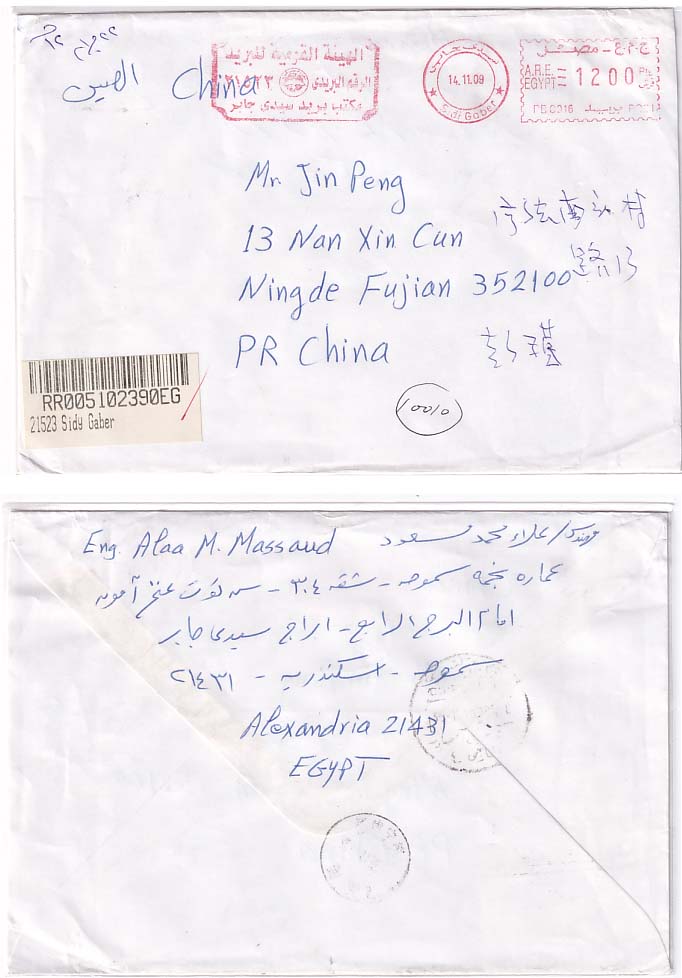 الصين China
الهيئة القومية للبريد
الرقم البريدى
مكتب بريد سيدى جابر
سيدى جابر
14.11.09
Sidi Gaber
ج.م.ع - مصر
A.R.E.
EGYPT
1200
PB8016
بريد
Mr. Jin Peng
13 Nan Xin Cun
Ningde Fujian 352100
PR China
彭
RR005102390EG
21523 Sidy Gaber
10010
Eng. Alaa M. Massaud
مهندس/ علاء محمد مسعود
عماره نجمه سموحه - شقه ٣٠٤ - ش توت عنخ آمون
امام البرج الرابع - ابراج سيدى جابر
سموحه - اسكندريه - ٢١٤٣١
Alexandria 21431
EGYPT